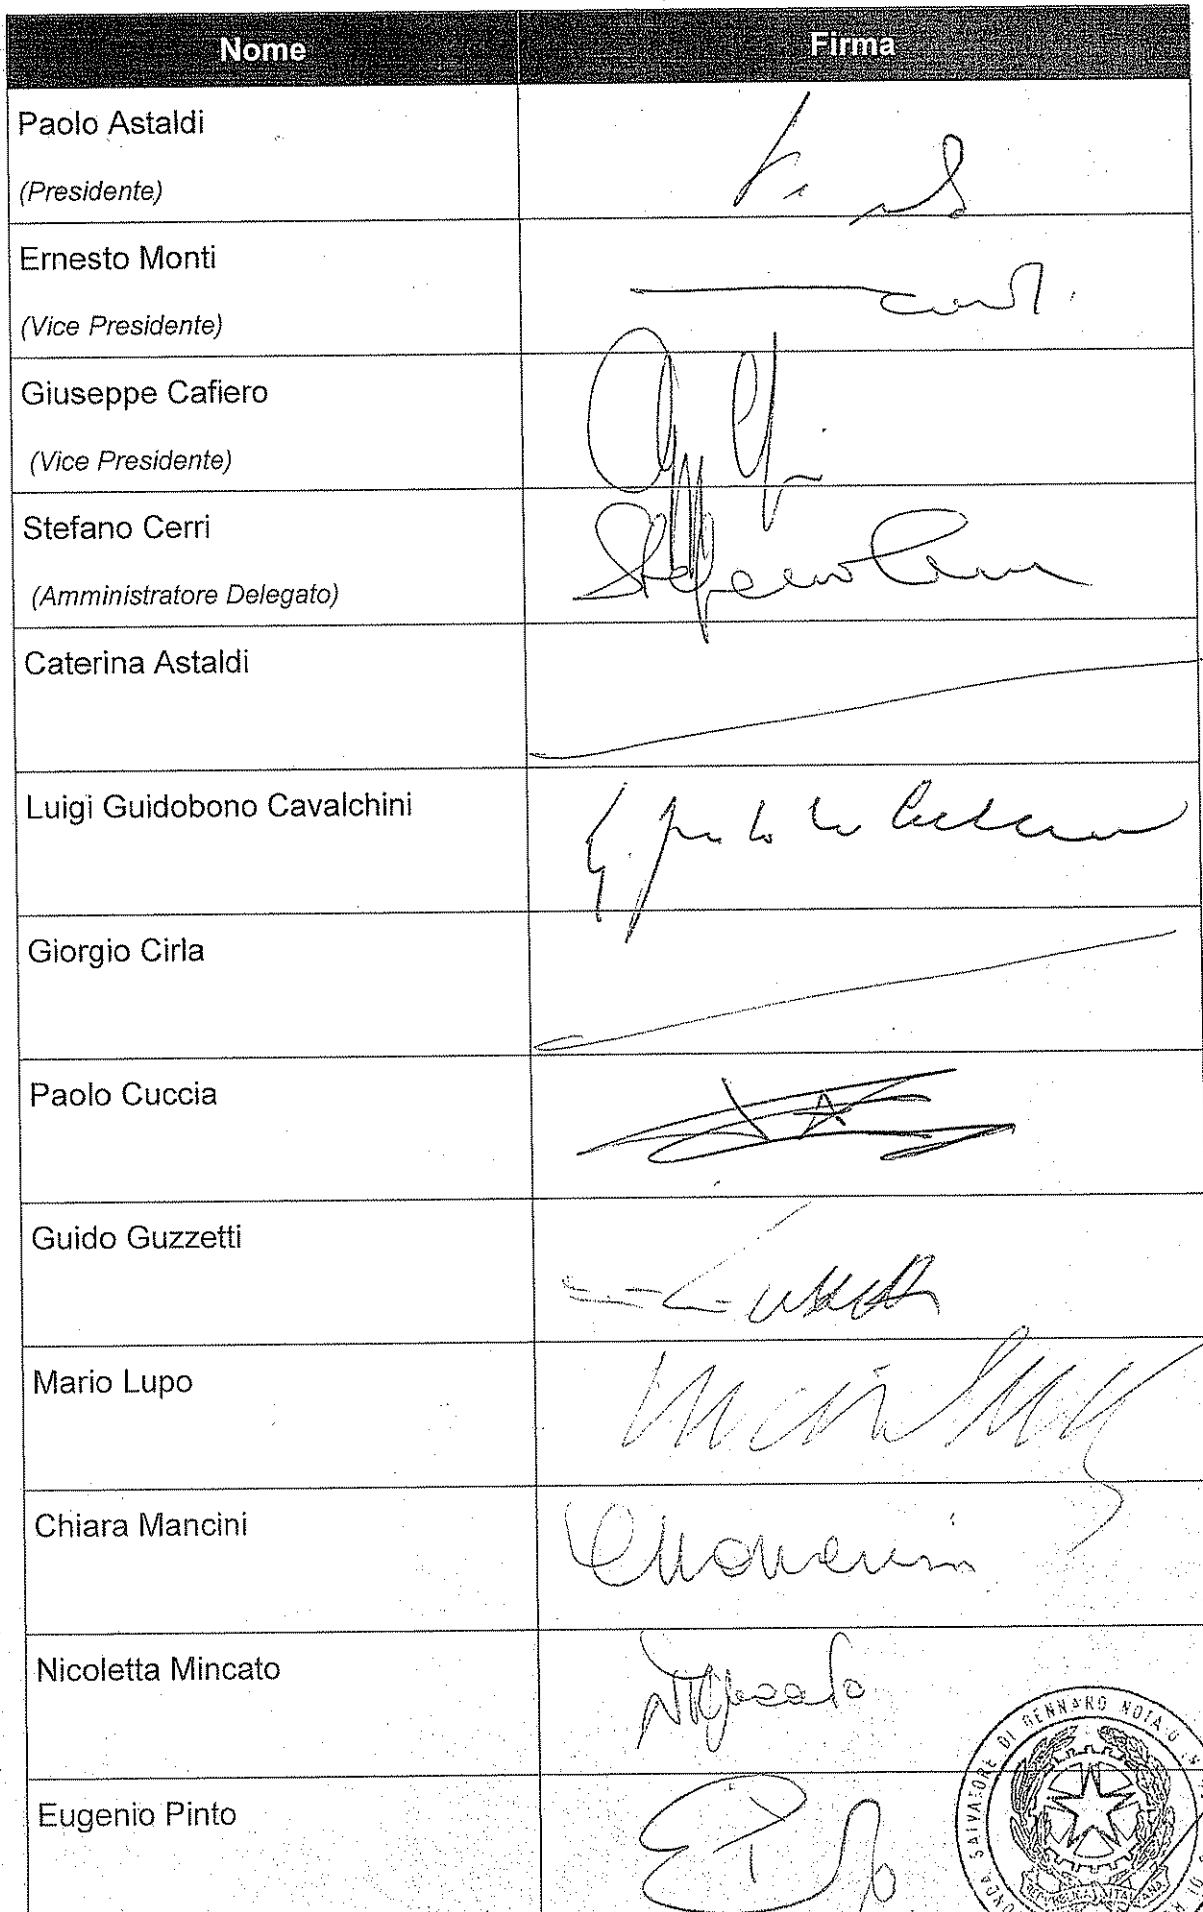 Nome Firma
Paolo Astaldi
(Presidente)
Ernesto Monti
(Vice Presidente)
Giuseppe Cafiero
(Vice Presidente)
Stefano Cerri
Stefano Cerri
(Amministratore Delegato)
Caterina Astaldi
Luigi Guidobono Cavalchini
Giorgio Cirla
Paolo Cuccia
Guido Guzzetti
Mario Lupo
Chiara Mancini
Nicoletta Mincato
Eugenio Pinto
SALVATORE DI GENNARO NOTAIO
REPUBBLICA ITALIANA